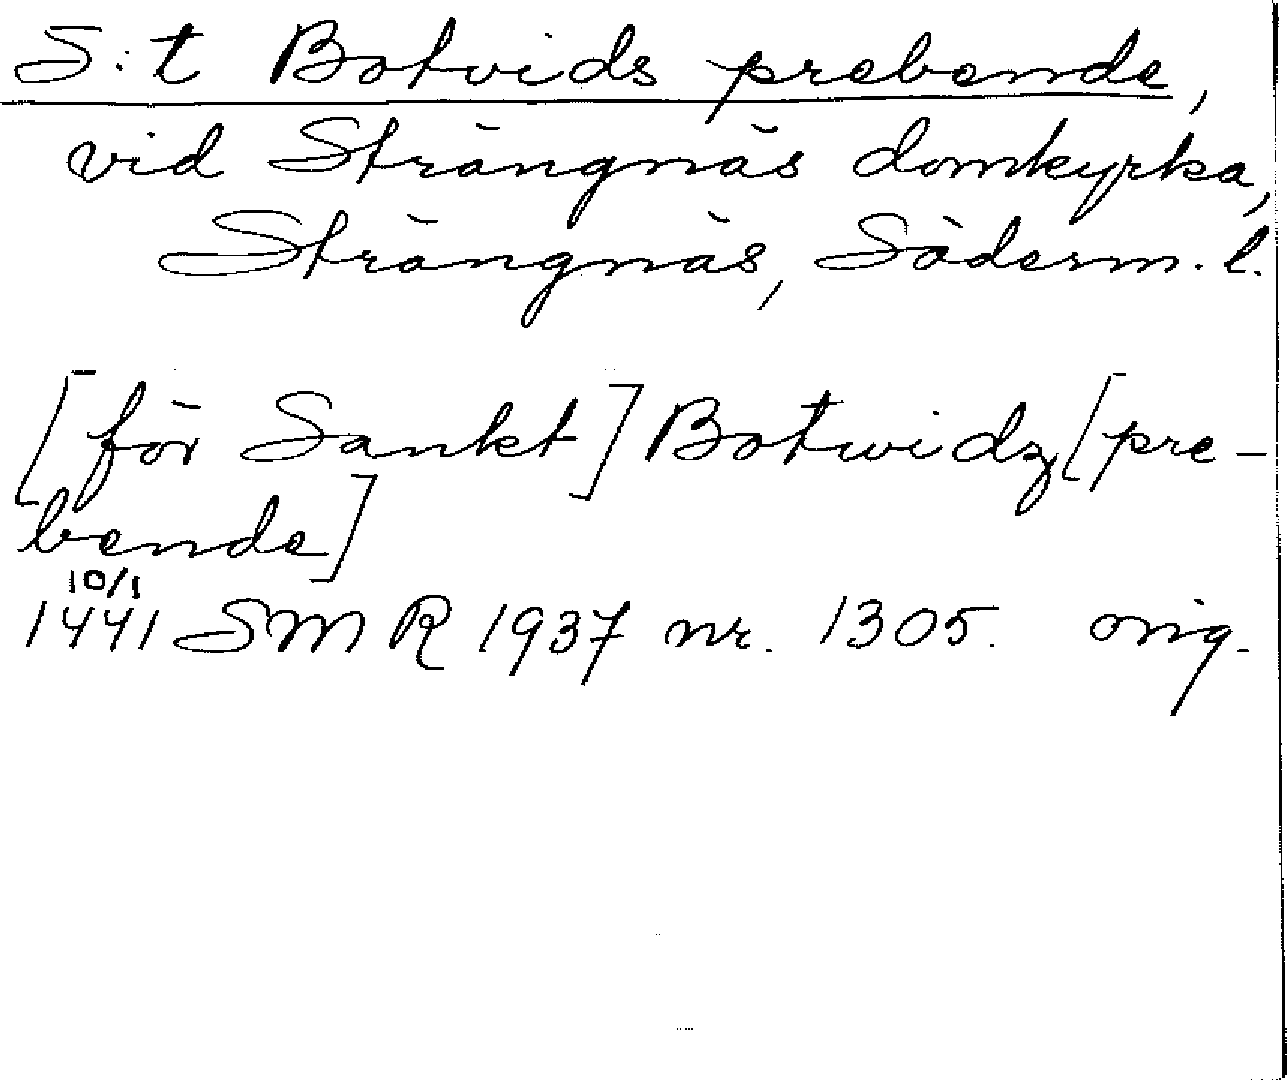 S:t Botvids prebende,
vid Strängnäs domkyrka,
Strängnäs, Söderm. l.
[för Sankt] Botwidz [pre-
bende]
10/1
1441 SMR 1937 nr. 1305. orig.